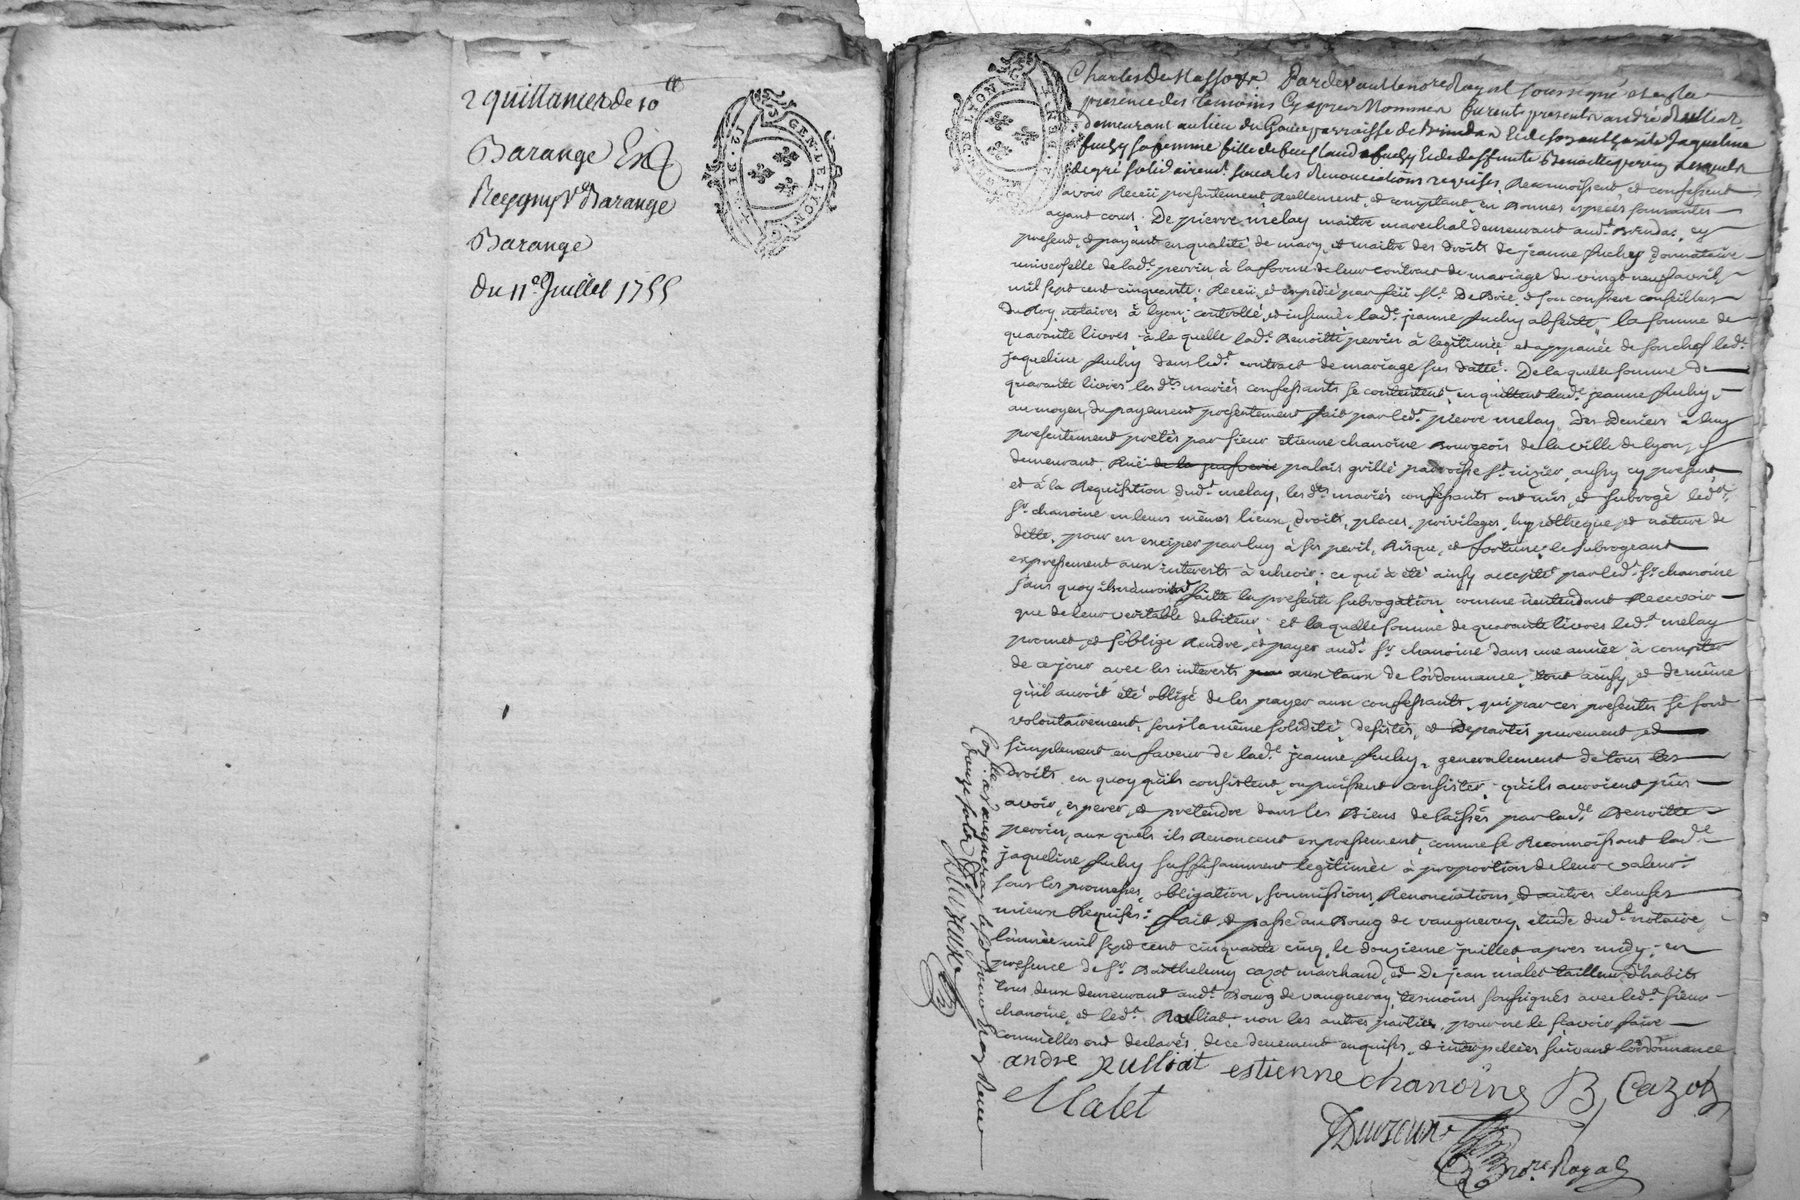 2 quittances de 10ll
Barange
Barange
Barange
du 11e Juillet 1755
GEN. LE LYON
Pardevant le no.re Royal soussigné et en la
presence des temoins cy apres Nommés furent presents andré Rulliat
demeurant au lieu du parroisse de Brindas Et de son authorité Jaqueline
fuchy sa femme fille de Claude fuchy Et de deffunte Benoitte perrin Lesquels
de gré solidairemt. sous les Renonciations reprises, Reconnoissent et confessent
avoir Receü presentement Reellement, et comptant, en Bonnes especes sonnantes
ayant cours. De pierre melay maitre marechal demeurant aud.t Brindas, cy
present, et payant en qualité de mary, et maitre des droits de jeanne fuchy donnataire
universelle de lad.e perrin à la forme de leur contract de mariage du vingt neuf avril
mil sept cent cinquante; Receü, et expedié par feü et son confrere conseillers
du Roy, notaires à lyon; controllé, et insinué lad.e jeanne fuchy absente, la somme de
quarante livres à la quelle lad.e Benoitte perrin à legitimée et appanée de son chef lad.e
jaqueline fuchy dans led.t contract de mariage sus datté. De laquelle somme de
quarante livres les d.ts mariés confessants se contentent, en quittent lad.e jeanne fuchy,
au moyen du payement presentement fait par led.t pierre melay, Des Deniers à luy
presentement pretés par sieur etienne chanoine Bourgeois de la ville de lyon, y
demeurant, Ruë de la palais grillé parroisse st. nizier, aussy cy present
et à la Requisition dud.t melay, les d.ts mariés confessants ont mis, et subrogé led.t
sr. chanoine en leurs mêmes lieux, droits, places, privileges, hypotheque, et nature de
dette, pour en exciper par luy à ses peril, Risque, et fortune; le subrogeant
expressement aux interests à echeoir; ce qui à été ainsy accepté par led.t sr. chanoine
sans quoy ils n'auroient faitte la presente subrogation, comme n'entendant Recevoir
que de leur veritable debiteur; et laquelle somme de quarante livres led.t melay
promet, et s'oblige Rendre, et payer aud.t sr. chanoine dans une année, à compter
de ce jour avec les interests aux taux de l'ordonnance, tout ainsy, et de même
qu'il auroit été obligé de les payer aux confessants, qui par ces presentes se sont
volontairement, sous la même solidité, desistés, et Departis purement, et
simplement en faveur de lad.e jeanne fuchy, generalement de tous les
droits en quoy qu'ils consistent, ou puissent consister, qu'ils auroient pûs
avoir, esperer, et prétendre dans les Biens delaissés par lad.e Benoitte
perrin, aux quels ils Renoncent expressement, comme se Reconnoissant lad.e
jaqueline fuchy suffisamment legitimée à proportion de leur valeur.
sous les promesses, obligation, soumissions, Renonciations, et autres clauses
mieux Requises: fait, et passé au Bourg de vaugneray, etude dud.t notaire,
l'année mil sept cent cinquante cinq, le douzieme juillet, apres midy; en
presence de sr. Barthelemy cazot marchand, et De jean malet tailleur d'habits
tous deux demeurant aud.t Bourg de vaugneray, temoins soussignés avec led.t sieur
chanoine, et led.t Rulliat, non les autres parties, pour ne le sçavoir faire
comm'elles ont declarés, de ce deuement enquises, et interpellées suivant l'ordonnance
andre rulliat estienne chanoine B Cazot
Malet
no.re Royal